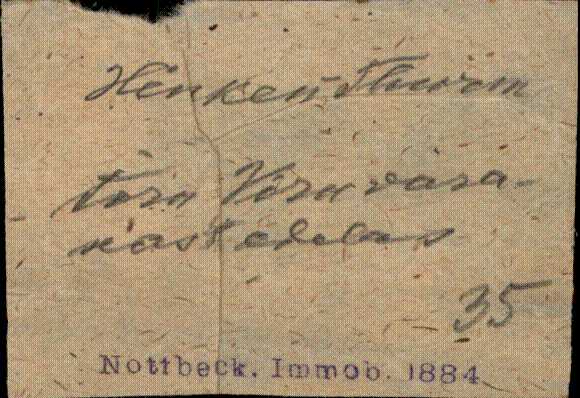 Hinken Thurm
torn Viru vära-
vast edelas
35
Nottbeck. Immob. 1884